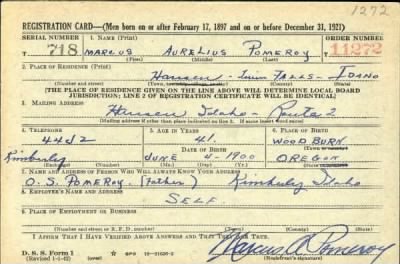 1272
REGISTRATION CARD—(Men born on or after February 17, 1897 and on or before December 31, 1921)
SERIAL NUMBER 1. NAME (Print) ORDER NUMBER
718 MARCUS AURELIUS POMEROY 11272
(First) (Middle) (Last)
2. PLACE OF RESIDENCE (Print)
Hansen - Twin Falls - Idaho
(Number and street) (Town, township, village, or city) (County) (State)
[THE PLACE OF RESIDENCE GIVEN ON THE LINE ABOVE WILL DETERMINE LOCAL BOARD
JURISDICTION; LINE 2 OF REGISTRATION CERTIFICATE WILL BE IDENTICAL]
3. MAILING ADDRESS
Hansen Idaho - Route 2
[Mailing address if other than place indicated on line 2. If same insert word same]
4. TELEPHONE 5. AGE IN YEARS 6. PLACE OF BIRTH
44J2 41. WOODBURN
DATE OF BIRTH (Town or county)
Kimberly JUNE 4 - 1900 OREGON
(Exchange) (Number) (Mo.) (Day) (Yr.) (State or country)
7. NAME AND ADDRESS OF PERSON WHO WILL ALWAYS KNOW YOUR ADDRESS
O. S. POMEROY (Father) Kimberly Idaho
8. EMPLOYER'S NAME AND ADDRESS
SELF
9. PLACE OF EMPLOYMENT OR BUSINESS
(Number and street or R. F. D. number) (Town) (County) (State)
I AFFIRM THAT I HAVE VERIFIED ABOVE ANSWERS AND THAT THEY ARE TRUE.
D. S. S. Form 1
(Revised 1-1-42) (over) GPO 16—21630-2
Marcus A. Pomeroy
(Registrant's signature)